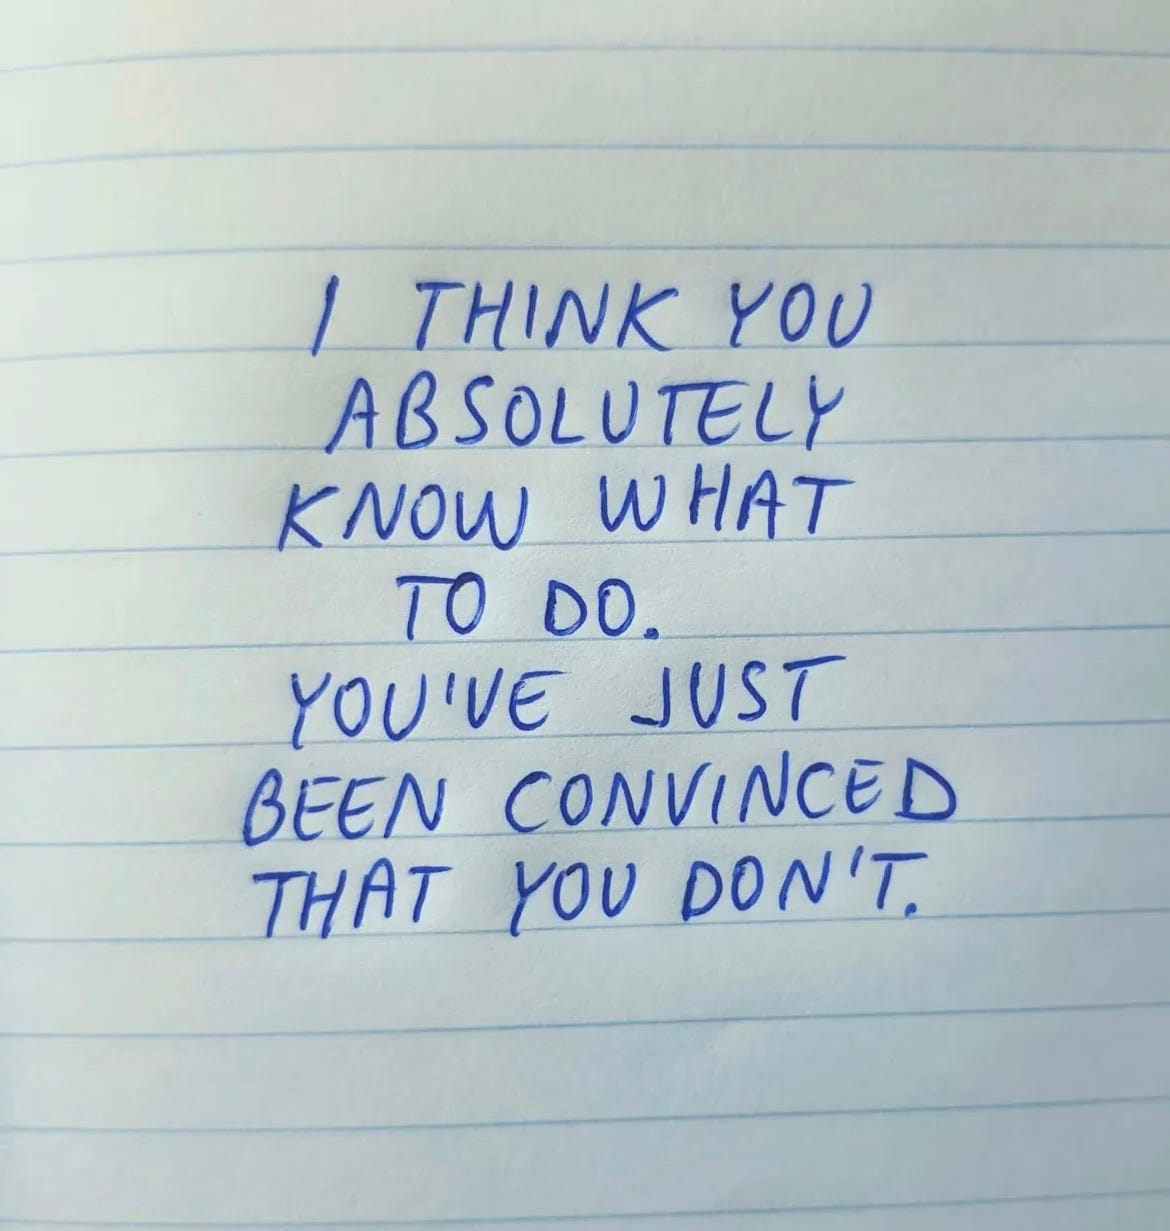 I THINK YOU
ABSOLUTELY
KNOW WHAT
TO DO.
YOU'VE JUST
BEEN CONVINCED
THAT YOU DON'T.